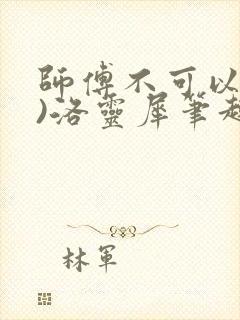 師傅不可以
)洛靈犀筆趣
林軍